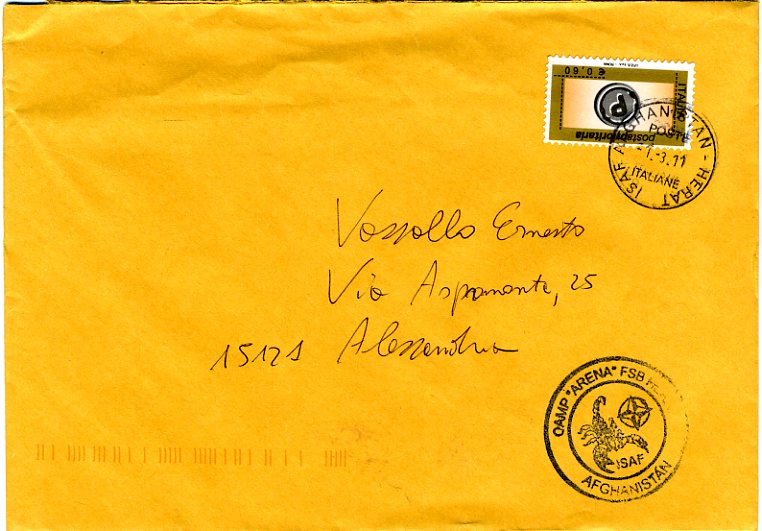 € 0,60
ITALIA
postaprioritaria
P
ISAF AFGHANISTAN - HERAT
POSTE
-1.-3.11
ITALIANE
Vassallo Ernesto
Via Aspromonte, 25
15121 Alessandria
CAMP "ARENA" FSB
ISAF
AFGHANISTÁN